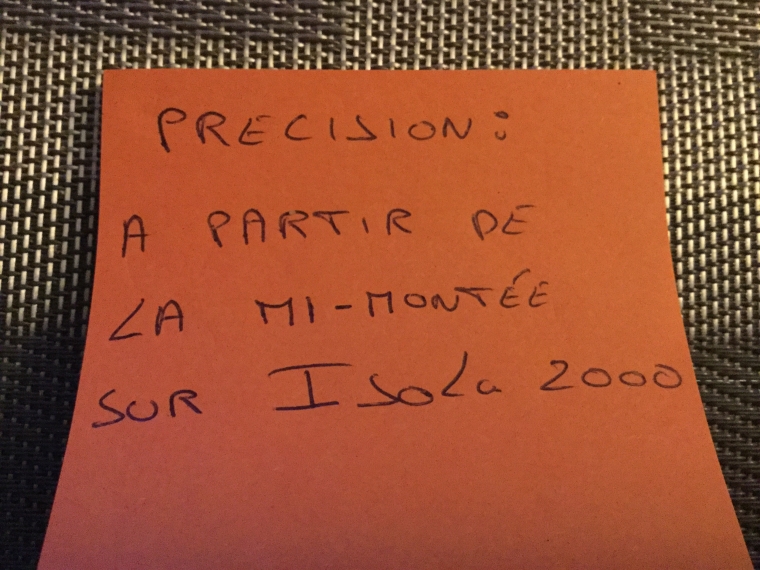 PRECISION:
A PARTIR DE
LA MI-MONTÉE
SUR Isola 2000